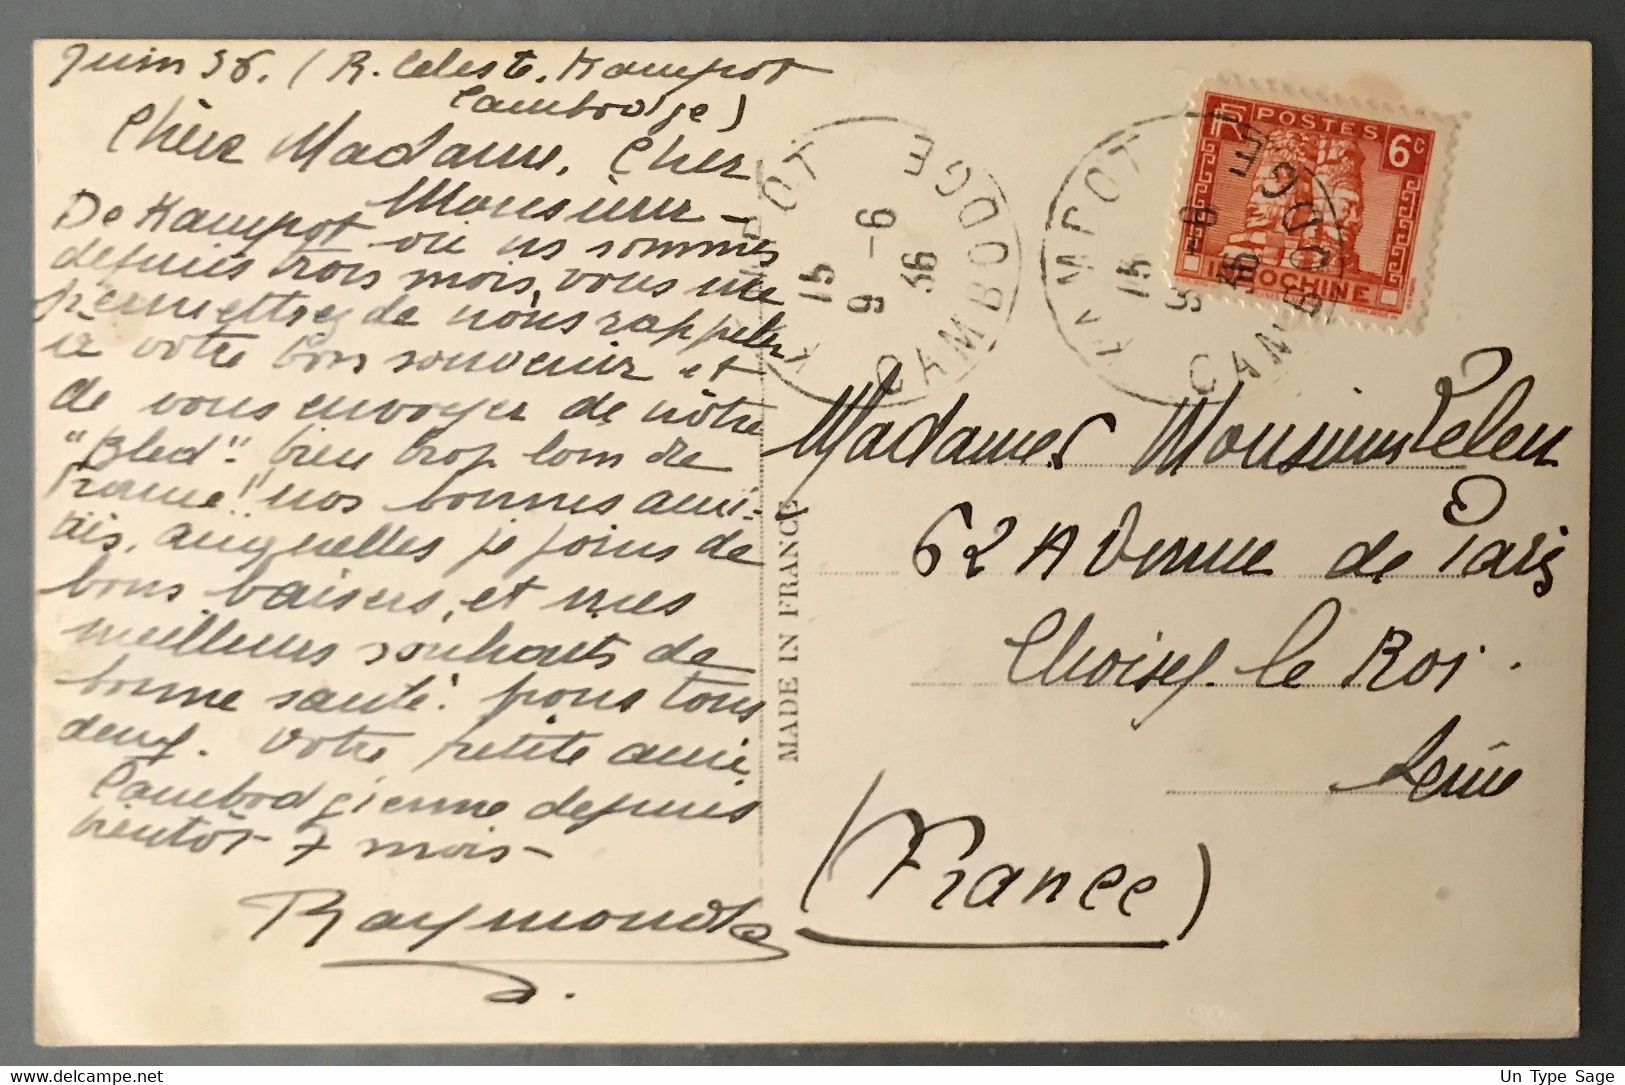 Juin 36. (R. Celeste. Kampot
Cambodge)
Chère Madame, Cher
Monsieur -
De Kampot où ns sommes
depuis trois mois, vous me
permettrez de nous rappeler
à votre bon souvenir et
de vous envoyer de nôtre
"Bled" bien trop loin de
France! nos bonnes ami-
tiés, auxquelles je joins de
bons baisers, et mes
meilleurs souhaits de
bonne santé pour tous
deux. Votre petite amie
Cambodgienne depuis
bientôt 7 mois -
Raymonde
MADE IN FRANCE
KAMPOT
15
9-6
36
CAMBODGE
KAMPOT
15
9-6
36
CAMBODGE
RF POSTES 6c
INDOCHINE
Madame Monsieur Leleu
62 Avenue de Paris
Choisy-le Roi.
Seine
(France)
Un Type Sage